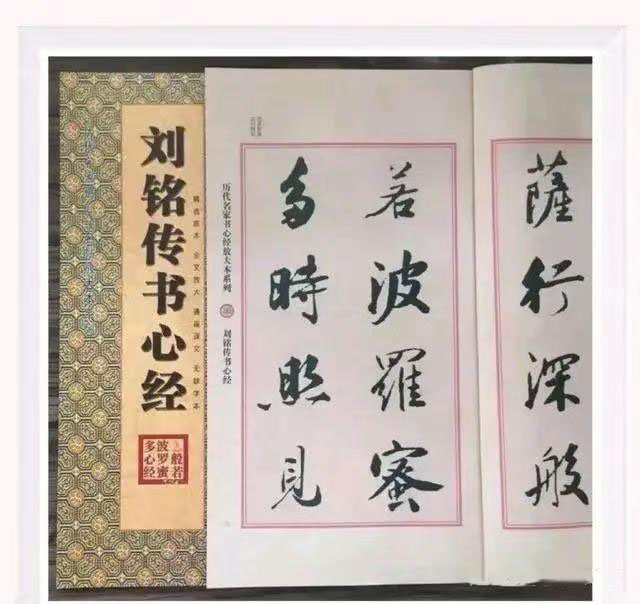 刘铭传书心经
精选底本 全文放大 通篇译文 无缺字本
般若
波罗蜜
多心经
历代名家书心经放大本系列
刘铭传书心经
薩行深般
若波羅蜜
多時照見